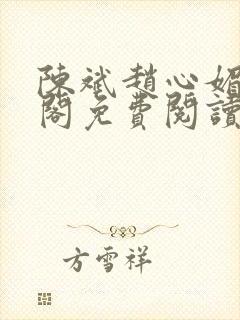 陳斌趙心媚
閣免費閱讀
方雪祥